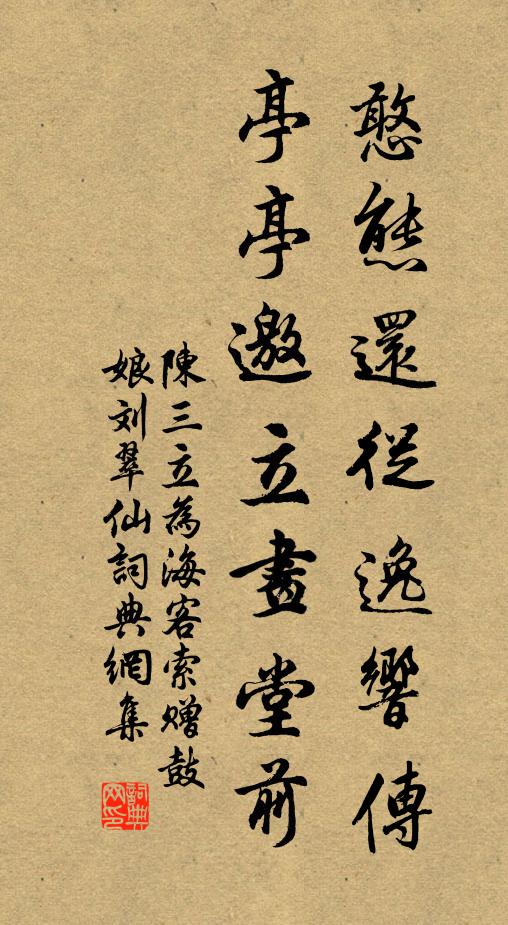 憨態還從逸響傳
亭亭邀立畫堂前
陳三立為海客索贈鼓
娘刘翠仙詞典網集
詞典
网印